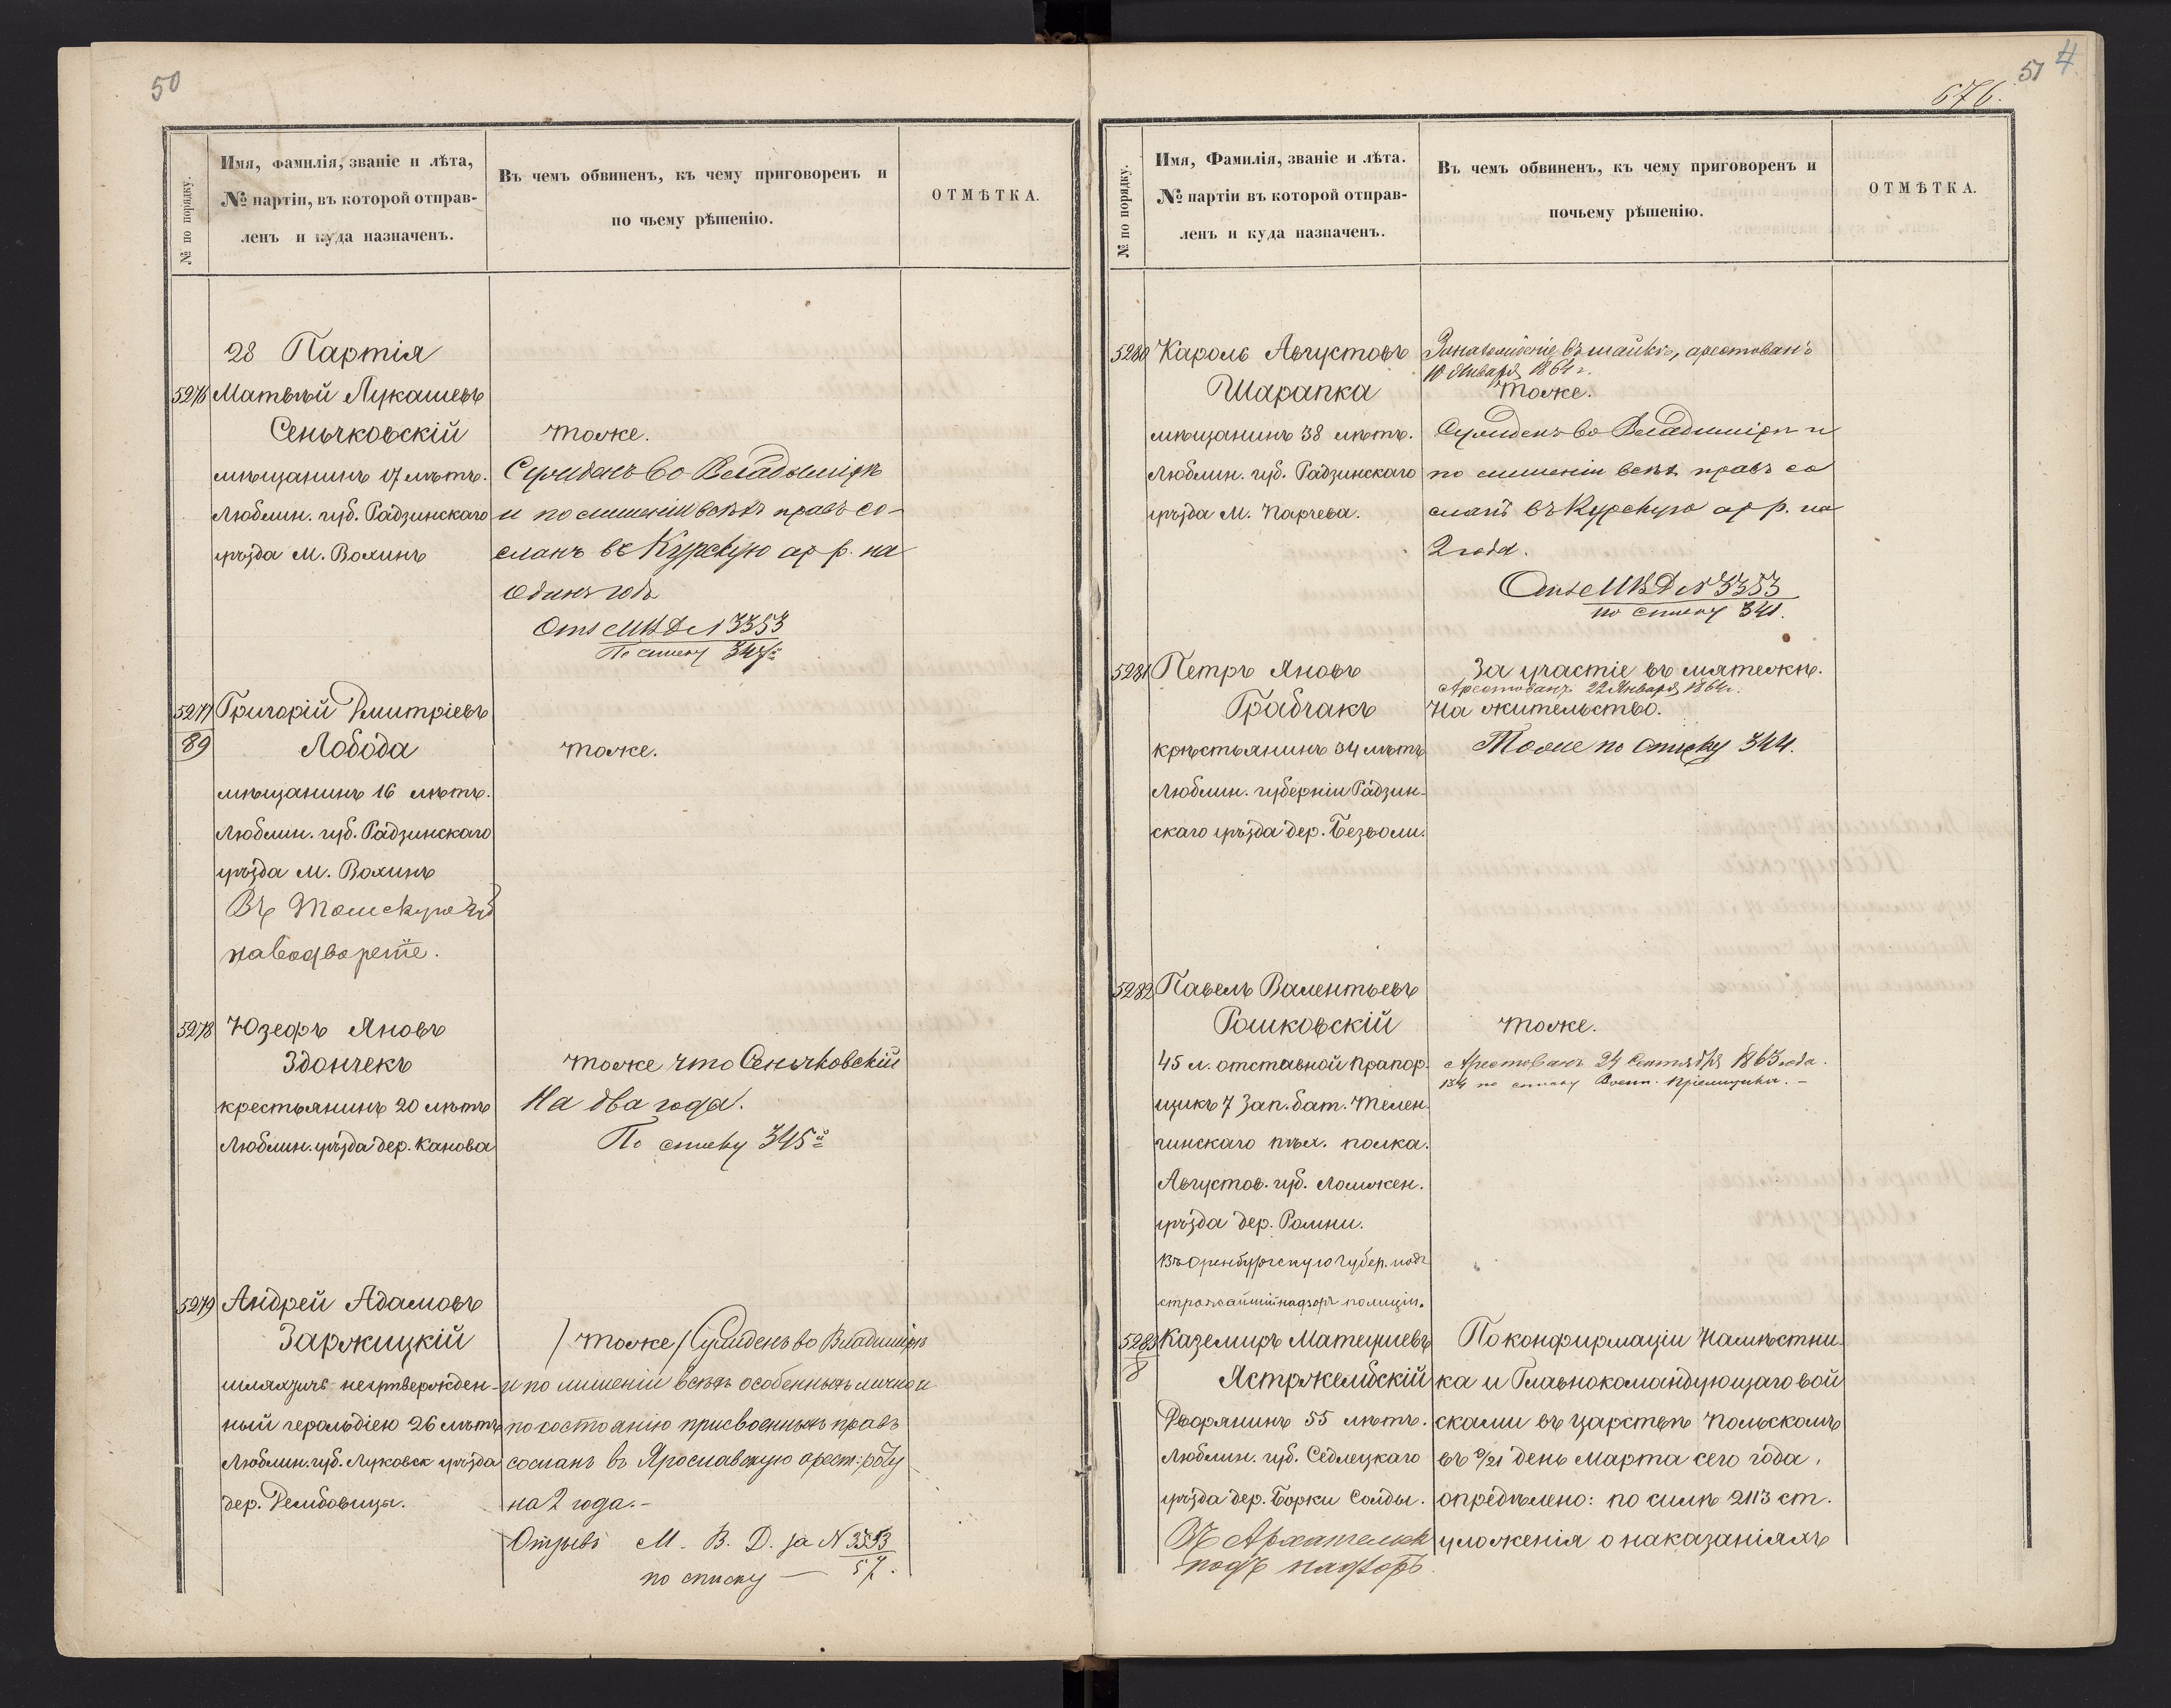 50
№ по порядку.
Имя, фамилія, званіе и лѣта,
№ партіи, въ которой отправ-
ленъ и куда назначенъ.
Въ чемъ обвиненъ, къ чему приговоренъ и
по чьему рѣшенію.
ОТМѢТКА.
28 Партія
5276 Матвѣй Лукашевъ
Сенычковскій
тоже.
мѣщанинъ 17 лѣтъ.
Сужденъ во Владимірѣ
Люблин. губ. Радзинскаго
и по лишеніи всѣхъ правъ со-
уѣзда М. Вохинъ
сланъ въ Курскую ар. р. на
одинъ годъ
Отъ М В Д № 3353
По списку
5277 Григорій Дмитріевъ
89
Лобода
тоже.
мѣщанинъ 16 лѣтъ.
Люблин. губ. Радзинскаго
уѣзда М. Вохинъ
Въ Томскую губ
на водвореніе.
5278 Юзефъ Яновъ
Здончекъ
тоже что Сенычковскій
крестьянинъ 20 лѣтъ
На два года.
Люблин. уѣзда дер. Канова
По списку 345й
5279 Андрей Адамовъ
Заржицкій
/тоже/ Сужденъ во Владимірѣ
шляхтичъ неутвержден-
и по лишеніи всѣхъ особенныхъ лично и
ный герольдіею 26 лѣтъ
по состоянію присвоенныхъ правъ
Люблин. губ. Луковск уѣзда
сосланъ въ Ярославскую арест: роту
дер. Дембовицы.
на 2 года.-
Отзывъ М. В. Д. за N 3353
по списку — 57.
676.
51 4.
№ по порядку.
Имя, Фамилія, званіе и лѣта.
№ партіи въ которой отправ-
ленъ и куда назначенъ.
Въ чемъ обвиненъ, къ чему приговоренъ и
почьему рѣшенію.
ОТМѢТКА.
5280 Кароль Августовъ
За нахожденіе въ шайкѣ, арестованъ
10 Января 1864 г.
Шарапка
тоже.
мѣщанинъ 38 лѣтъ.
Сужденъ во Владимірѣ и
Люблин. губ. Радзинскаго
по лишеніи всѣхъ правъ со
уѣзда М. Парчева.
сланъ въ Курскую ар р. на
2 года.
Отъ М В Д № 3353
по списку 341.
5281 Петръ Яновъ
За участіе въ мятежѣ.
Арестованъ 22 Января 1864 г.
Грабчакъ
На жительство.
крѣстьянинъ 34 лѣтъ
Тоже по списку 344.
Люблин. губерніи Радзин-
скаго уѣзда дер. Безволи.
5282 Павелъ Валентьевъ
Рошковскій
тоже.
45 л. отставной прапор-
Арестованъ 24 Сентября 1863 года.
134 по списку Воен. Пріемщика. -
щикъ 7 Зап. бат. Телен-
гинскаго пѣх. полка.
Августов. губ. Ломжен.
уѣзда дер. Ромни.
Въ Оренбургскую губер. подъ
строжайшій надзоръ полиціи.
5283 Каземиръ Матеушевъ
По конфирмаціи Намѣстни-
8
Ястржембскій
ка и Главнокомандующаго вой
Дворянинъ 55 лѣтъ.
сками въ царствѣ Польскомъ
Люблин. губ. Сѣдлецкаго
въ 9/21 день Марта сего года,
уѣзда дер. Борки Солды.
опредѣлено: по силѣ 2113 ст.
Въ Архангельск
уложенія о наказаніяхъ
подъ надзоръ